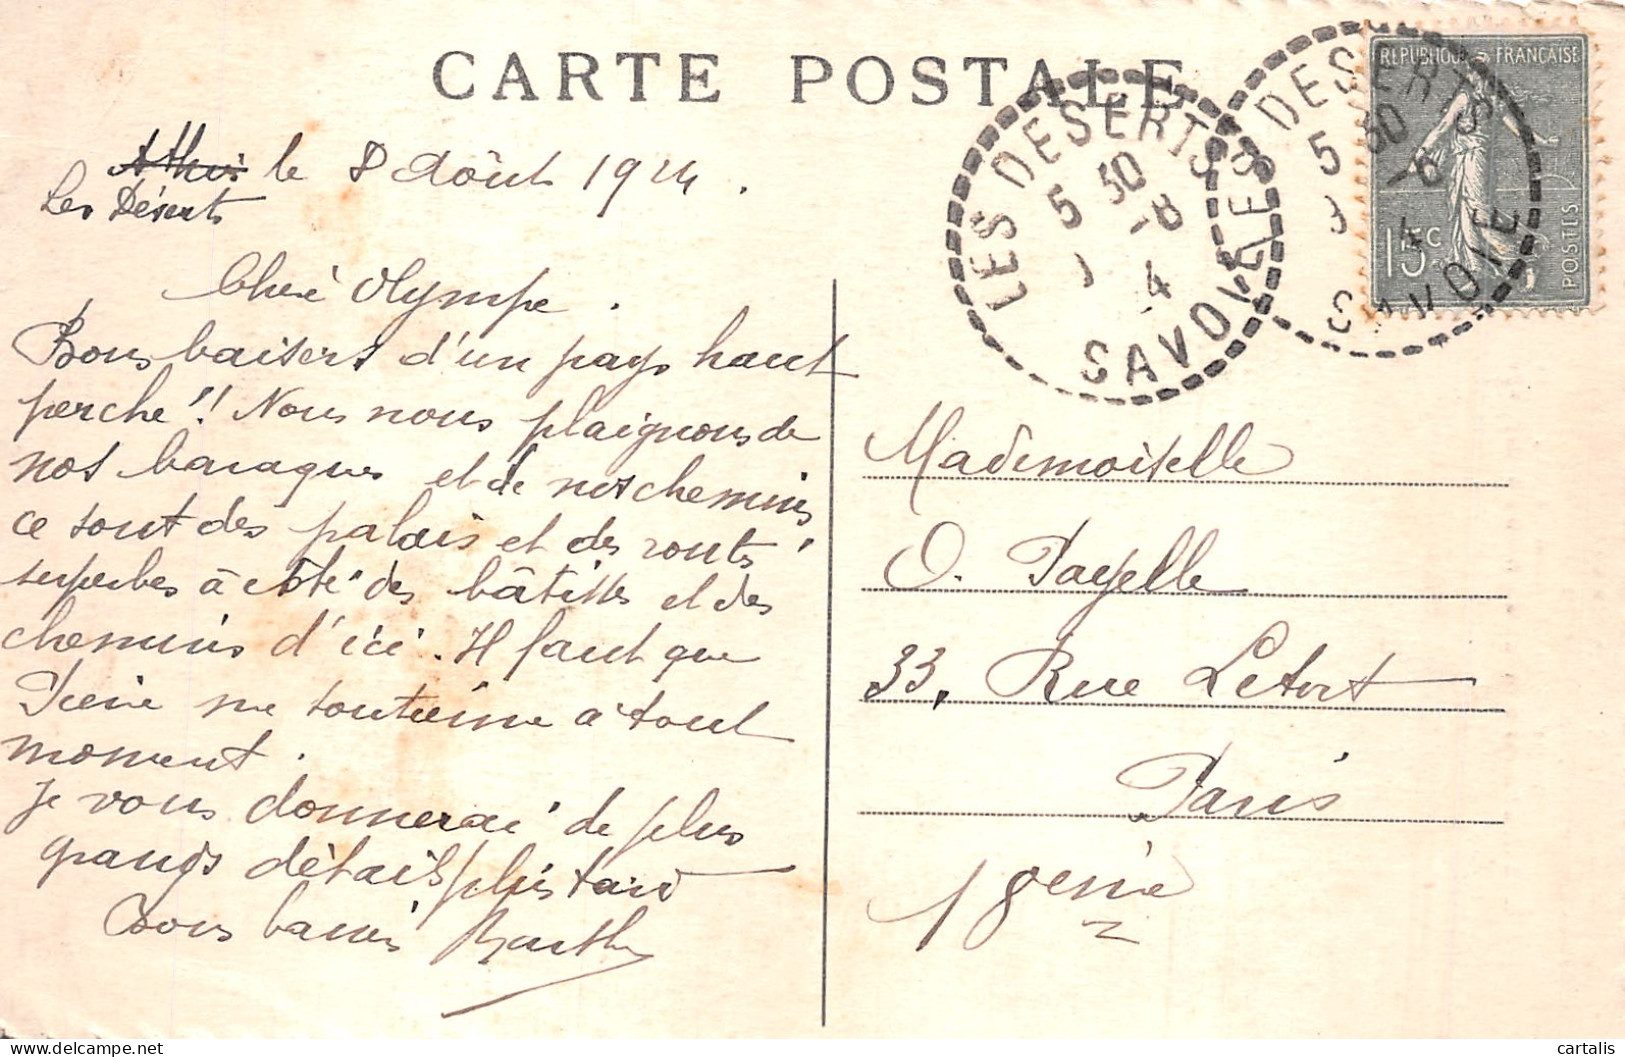 CARTE POSTALE
RÉPUBLIQUE FRANÇAISE
15c
POSTES
LES DESERTS
5 30
-8
4
SAVOIE
LES DESERTS
5 30
-8
4
SAVOIE
Athis le 8 Août 1924.
Les Déserts
Chère Olympe.
Bons baisers d'un pays haut
perché!! Nous nous plaignons de
nos baraques et de nos chemins
ce sont des palais et des routes
superbes à côté des bâtisses et des
chemins d'ici. Il faut que
me soutienne à tout
moment.
Je vous donnerai de plus
grands détails plus tard
Bons baisers Marthe
Mademoiselle
O. Payelle
33, Rue Letort
Paris
18eme
cartalis